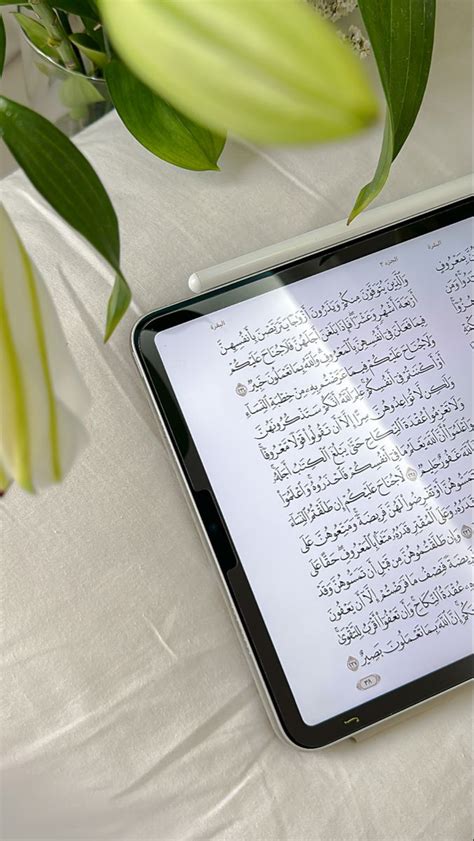 البقرة
الجزء ٢
البقرة
وَٱلَّذِينَ يُتَوَفَّوْنَ مِنكُمْ وَيَذَرُونَ أَزْوَٰجًا يَتَرَبَّصْنَ بِأَنفُسِهِنَّ
أَرْبَعَةَ أَشْهُرٍ وَعَشْرًا فَإِذَا بَلَغْنَ أَجَلَهُنَّ فَلَا جُنَاحَ عَلَيْكُمْ
فِيمَا فَعَلْنَ فِىٓ أَنفُسِهِنَّ بِٱلْمَعْرُوفِ وَٱللَّهُ بِمَا تَعْمَلُونَ خَبِيرٌ ٢٣٤
وَلَا جُنَاحَ عَلَيْكُمْ فِيمَا عَرَّضْتُم بِهِۦ مِنْ خِطْبَةِ ٱلنِّسَآءِ
أَوْ أَكْنَنتُمْ فِىٓ أَنفُسِكُمْ عَلِمَ ٱللَّهُ أَنَّكُمْ سَتَذْكُرُونَهُنَّ
وَلَٰكِن لَّا تُوَاعِدُوهُنَّ سِرًّا إِلَّآ أَن تَقُولُوا۟ قَوْلًا مَّعْرُوفًا
وَلَا تَعْزِمُوا۟ عُقْدَةَ ٱلنِّكَاحِ حَتَّىٰ يَبْلُغَ ٱلْكِتَٰبُ أَجَلَهُۥ
وَٱعْلَمُوٓا۟ أَنَّ ٱللَّهَ يَعْلَمُ مَا فِىٓ أَنفُسِكُمْ فَٱحْذَرُوهُ وَٱعْلَمُوٓا۟
غَفُورٌ حَلِيمٌ ٢٣٥ لَّا جُنَاحَ عَلَيْكُمْ إِن طَلَّقْتُمُ ٱلنِّسَآءَ
تَمَسُّوهُنَّ أَوْ تَفْرِضُوا۟ لَهُنَّ فَرِيضَةً وَمَتِّعُوهُنَّ عَلَى
قَدَرُهُۥ وَعَلَى ٱلْمُقْتِرِ قَدَرُهُۥ مَتَٰعًۢا بِٱلْمَعْرُوفِ حَقًّا عَلَى
وَإِن طَلَّقْتُمُوهُنَّ مِن قَبْلِ أَن تَمَسُّوهُنَّ وَقَدْ
فَرِيضَةً فَنِصْفُ مَا فَرَضْتُمْ إِلَّآ أَن يَعْفُونَ
عُقْدَةُ ٱلنِّكَاحِ وَأَن تَعْفُوٓا۟ أَقْرَبُ لِلتَّقْوَىٰ
إِنَّ ٱللَّهَ بِمَا تَعْمَلُونَ بَصِيرٌ ٢٣٧
٣٨